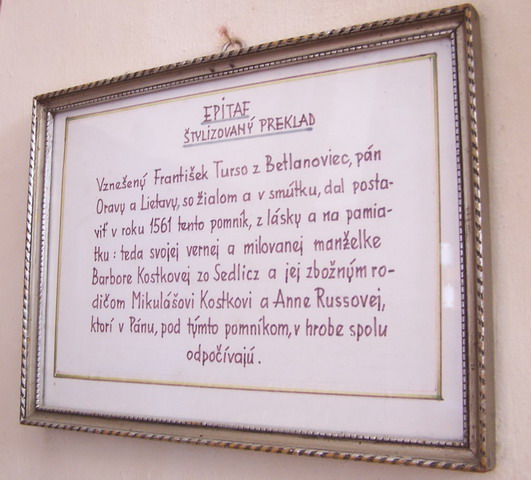 EPITAF
ŠTYLIZOVANÝ PREKLAD
Vznešený František Turso z Betlanoviec, pán
Oravy a Lietavy, so žialom a v smútku, dal posta-
viť v roku 1561 tento pomník, z lásky a na pamia-
tku: teda svojej vernej a milovanej manželke
Barbore Kostkovej zo Sedlicz a jej zbožným ro-
dičom Mikulášovi Kostkovi a Anne Russovej,
ktorí v Pánu, pod týmto pomníkom, v hrobe spolu
odpočívajú.